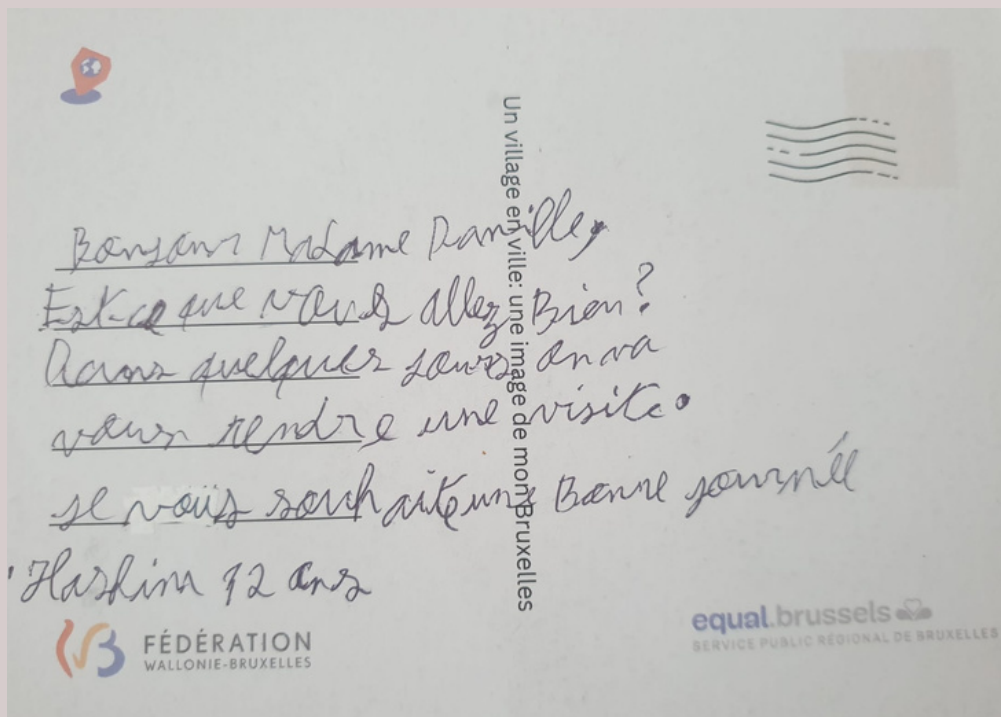 Un village en ville: une image de mon Bruxelles
Bonjour Madame Danielle,
Est-ce que vous allez Bien?
Dans quelques jours on va
vous rendre une visite.
je vous souhaite une Bonne journée
Hashim 12 ans
FÉDÉRATION
WALLONIE-BRUXELLES
equal.brussels
SERVICE PUBLIC RÉGIONAL DE BRUXELLES